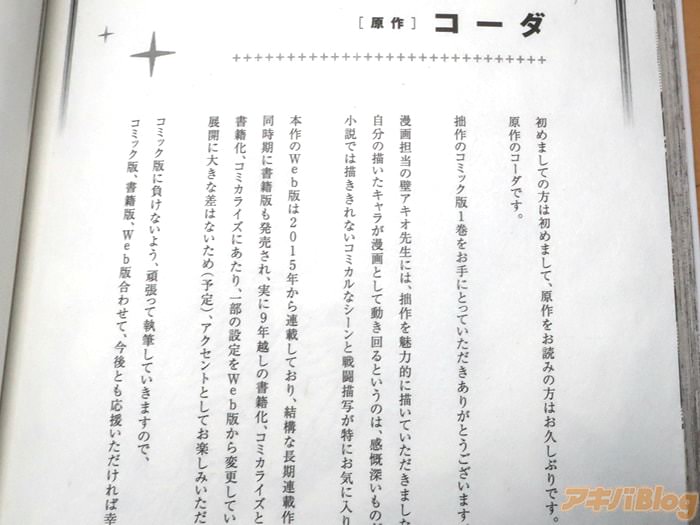 [原作] コーダ
初めましての方は初めまして、原作をお読みの方はお久しぶりです。
原作のコーダです。
拙作のコミック版1巻をお手にとっていただきありがとうございます。
漫画担当の壁アキオ先生には、拙作を魅力的に描いていただきました
自分の描いたキャラが漫画として動き回るというのは、感慨深いもの
小説では描ききれないコミカルなシーンと戦闘描写が特にお気に入り
本作のWeb版は2015年から連載しており、結構な長期連載作
同時期に書籍版も発売され、実に9年越しの書籍化、コミカライズと
書籍化、コミカライズにあたり、一部の設定をWeb版から変更してい
展開に大きな差はないため(予定)、アクセントとしてお楽しみいただ
コミック版に負けないよう、頑張って執筆していきますので、
コミック版、書籍版、Web版合わせて、今後とも応援いただければ幸
アキバBlog